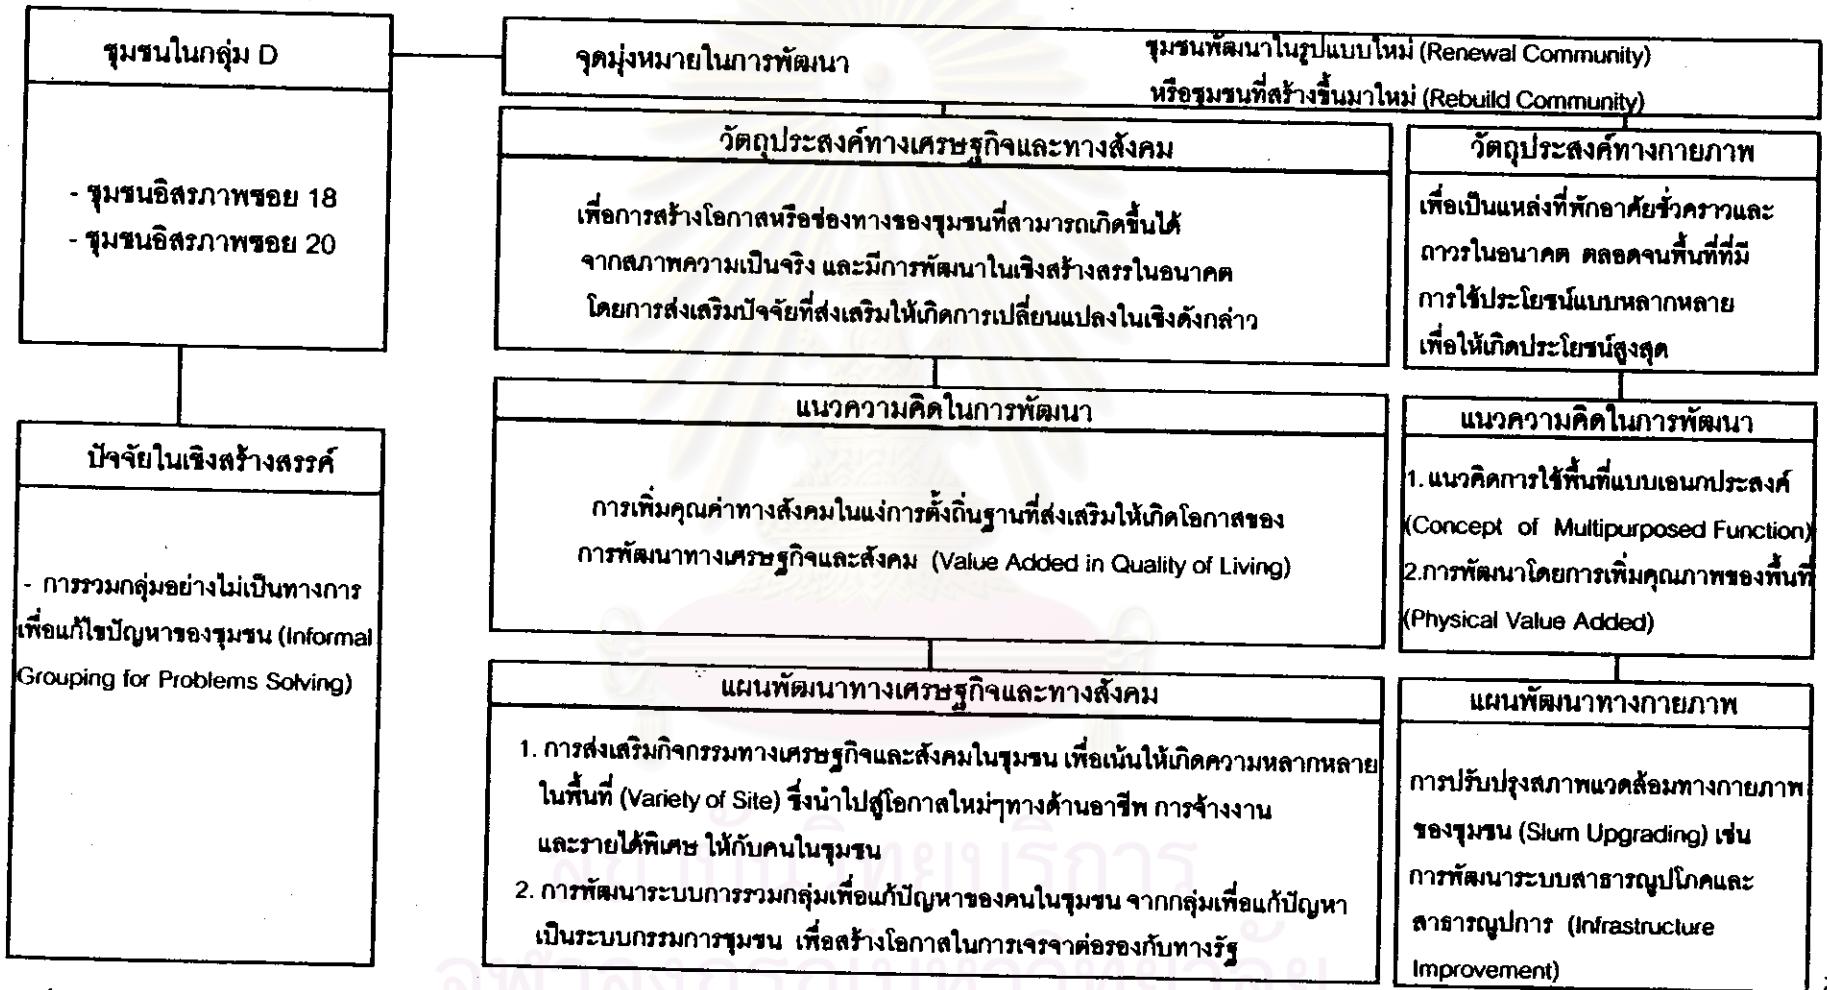 ชุมชนในกลุ่ม D
- ชุมชนอิสรภาพซอย 18
- ชุมชนอิสรภาพซอย 20
ปัจจัยในเชิงสร้างสรรค์
- การรวมกลุ่มอย่างไม่เป็นทางการ
เพื่อแก้ไขปัญหาของชุมชน (Informal
Grouping for Problems Solving)
จุดมุ่งหมายในการพัฒนา
ชุมชนพัฒนาในรูปแบบใหม่ (Renewal Community)
หรือชุมชนที่สร้างขึ้นมาใหม่ (Rebuild Community)
วัตถุประสงค์ทางเศรษฐกิจและทางสังคม
เพื่อการสร้างโอกาสหรือช่องทางของชุมชนที่สามารถเกิดขึ้นได้
จากสภาพความเป็นจริง และมีการพัฒนาในเชิงสร้างสรรในอนาคต
โดยการส่งเสริมปัจจัยที่ส่งเสริมให้เกิดการเปลี่ยนแปลงในเชิงดังกล่าว
แนวความคิดในการพัฒนา
การเพิ่มคุณค่าทางสังคมในแง่การตั้งถิ่นฐานที่ส่งเสริมให้เกิดโอกาสของ
การพัฒนาทางเศรษฐกิจและสังคม (Value Added in Quality of Living)
แผนพัฒนาทางเศรษฐกิจและทางสังคม
1. การส่งเสริมกิจกรรมทางเศรษฐกิจและสังคมในชุมชน เพื่อเน้นให้เกิดความหลากหลาย
ในพื้นที่ (Variety of Site) ซึ่งนำไปสู่โอกาสใหม่ๆทางด้านอาชีพ การจ้างงาน
และรายได้พิเศษ ให้กับคนในชุมชน
2. การพัฒนาระบบการรวมกลุ่มเพื่อแก้ปัญหาของคนในชุมชน จากกลุ่มเพื่อแก้ปัญหา
เป็นระบบกรรมการชุมชน เพื่อสร้างโอกาสในการเจรจาต่อรองกับทางรัฐ
วัตถุประสงค์ทางกายภาพ
เพื่อเป็นแหล่งที่พักอาศัยชั่วคราวและ
ถาวรในอนาคต ตลอดจนพื้นที่ที่มี
การใช้ประโยชน์แบบหลากหลาย
เพื่อให้เกิดประโยชน์สูงสุด
แนวความคิดในการพัฒนา
1. แนวคิดการใช้พื้นที่แบบเอนกประสงค์
(Concept of Multipurposed Function)
2.การพัฒนาโดยการเพิ่มคุณภาพของพื้นที่
(Physical Value Added)
แผนพัฒนาทางกายภาพ
การปรับปรุงสภาพแวดล้อมทางกายภาพ
ของชุมชน (Slum Upgrading) เช่น
การพัฒนาระบบสาธารณูปโภคและ
สาธารณูปการ (Infrastructure
Improvement)
สถาบันวิทยบริการ
จุฬาลงกรณ์มหาวิทยาลัย